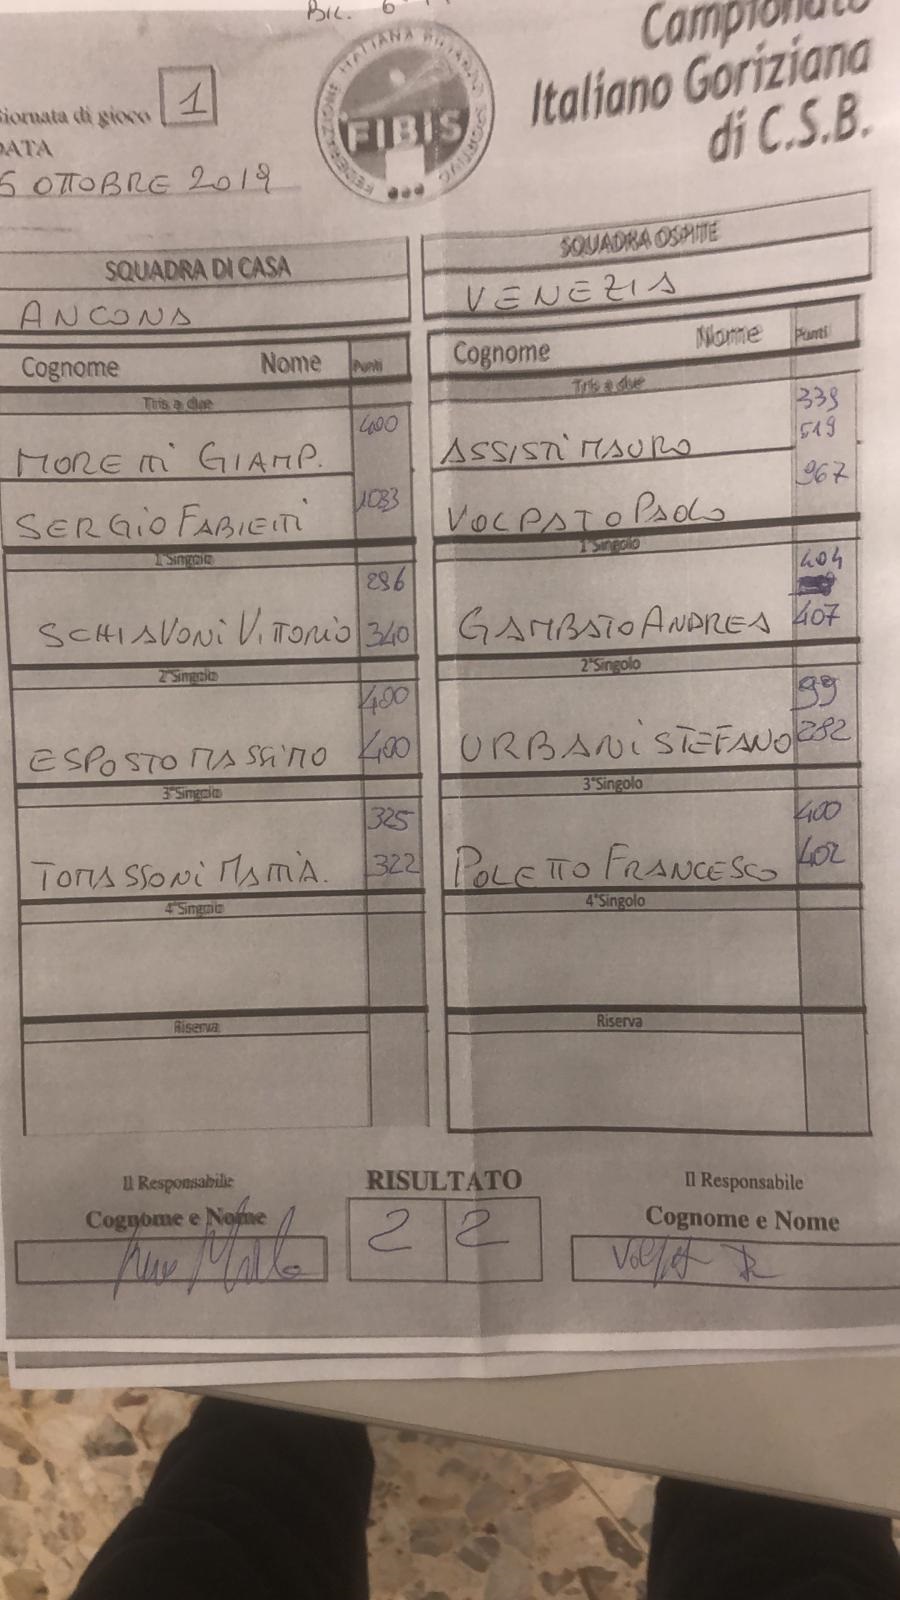 Campionato
Italiano Goriziana
di C.S.B.
Giornata di gioco 1
DATA
5 OTTOBRE 2019
FEDERAZIONE ITALIANA BILIARDO SPORTIVO
FIBIS
SQUADRA DI CASA
ANCONA
Cognome Nome Punti
Tris a due
400
MORETTI GIAMP.
1083
SERGIO FABIETTI
1°Singolo
296
SCHIAVONI VITTORIO 340
2°Singolo
400
ESPOSTO MASSIMO 400
3°Singolo
325
TOMASSONI MATTIA. 322
4°Singolo
Riserva
SQUADRA OSPITE
VENEZIA
Cognome Nome Punti
Tris a due
339
519
ASSISTI MAURO
967
VOLPATO PAOLO
1°Singolo
404
GAMBATO ANDREA 407
2°Singolo
99
URBANI STEFANO 282
3°Singolo
400
POLETTO FRANCESCO 402
4°Singolo
Riserva
Il Responsabile
Cognome e Nome
RISULTATO
2 2
Il Responsabile
Cognome e Nome